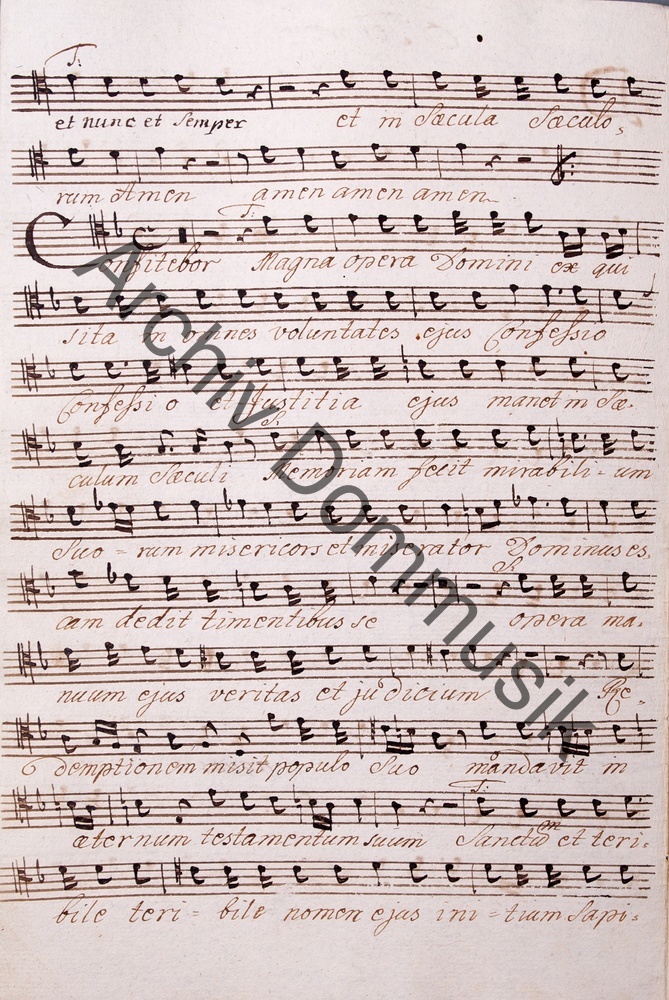 T:
et nunc et Semper et in Sæcula Sæculo,
rum Amen amen amen amen
T:
Confitebor Magna opera Domini ex qui
sita in omnes voluntates ejus Confessio
Confessi o et Justitia ejus manet in Sæ-
S:
culum Sæculi Memoriam fecit mirabili = um
Suo = rum misericors et miserator Dominus es,
S:
cam dedit timentibus se opera ma,
nuum ejus veritas et judicium Re,
demptionem misit populo Suo mandavit in
T:
æternum testamentum suum Sanctũ et teri,
bile teri = bile nomen ejus ini = tium Sapi,
Archiv Dommusik